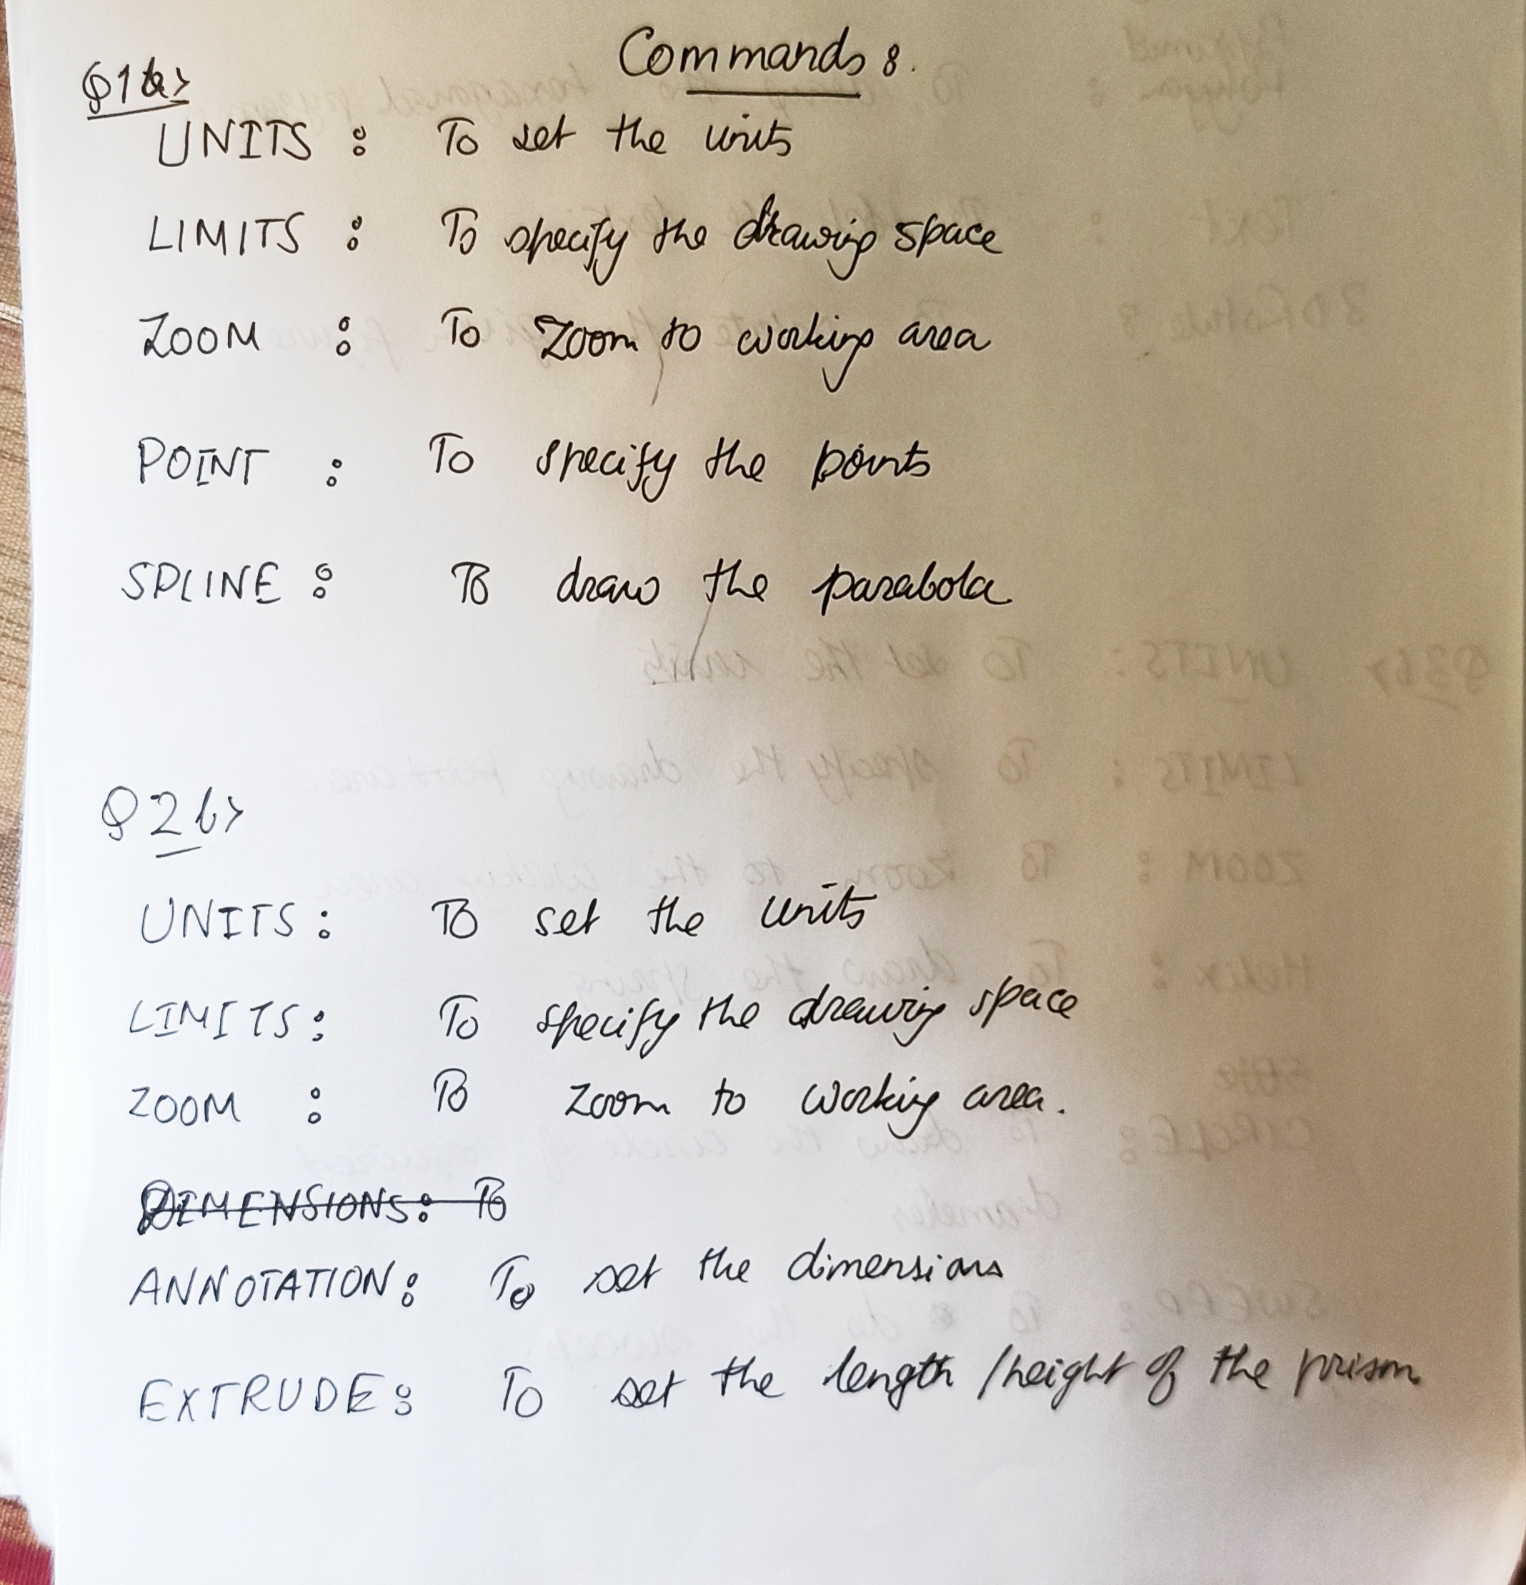 Commands :
Q1b>
UNITS : To set the units
LIMITS : To specify the drawing space
ZOOM : To Zoom to working area
POINT : To specify the points
SPLINE : To draw the parabola
Q2b>
UNITS : To set the units
LIMITS : To specify the drawing space
ZOOM : To Zoom to working area.
DIMENSIONS : To
ANNOTATION : To set the dimensions
EXTRUDE : To set the length /height of the prism